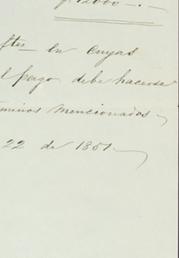 12000 -
ftes en cuyas
el pago debe hacerse
minos mencionados
22 de 1851